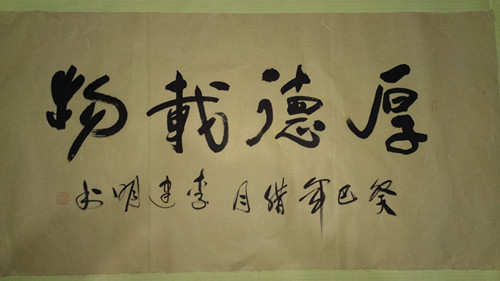 厚德載物
癸巳年腊月李建明书